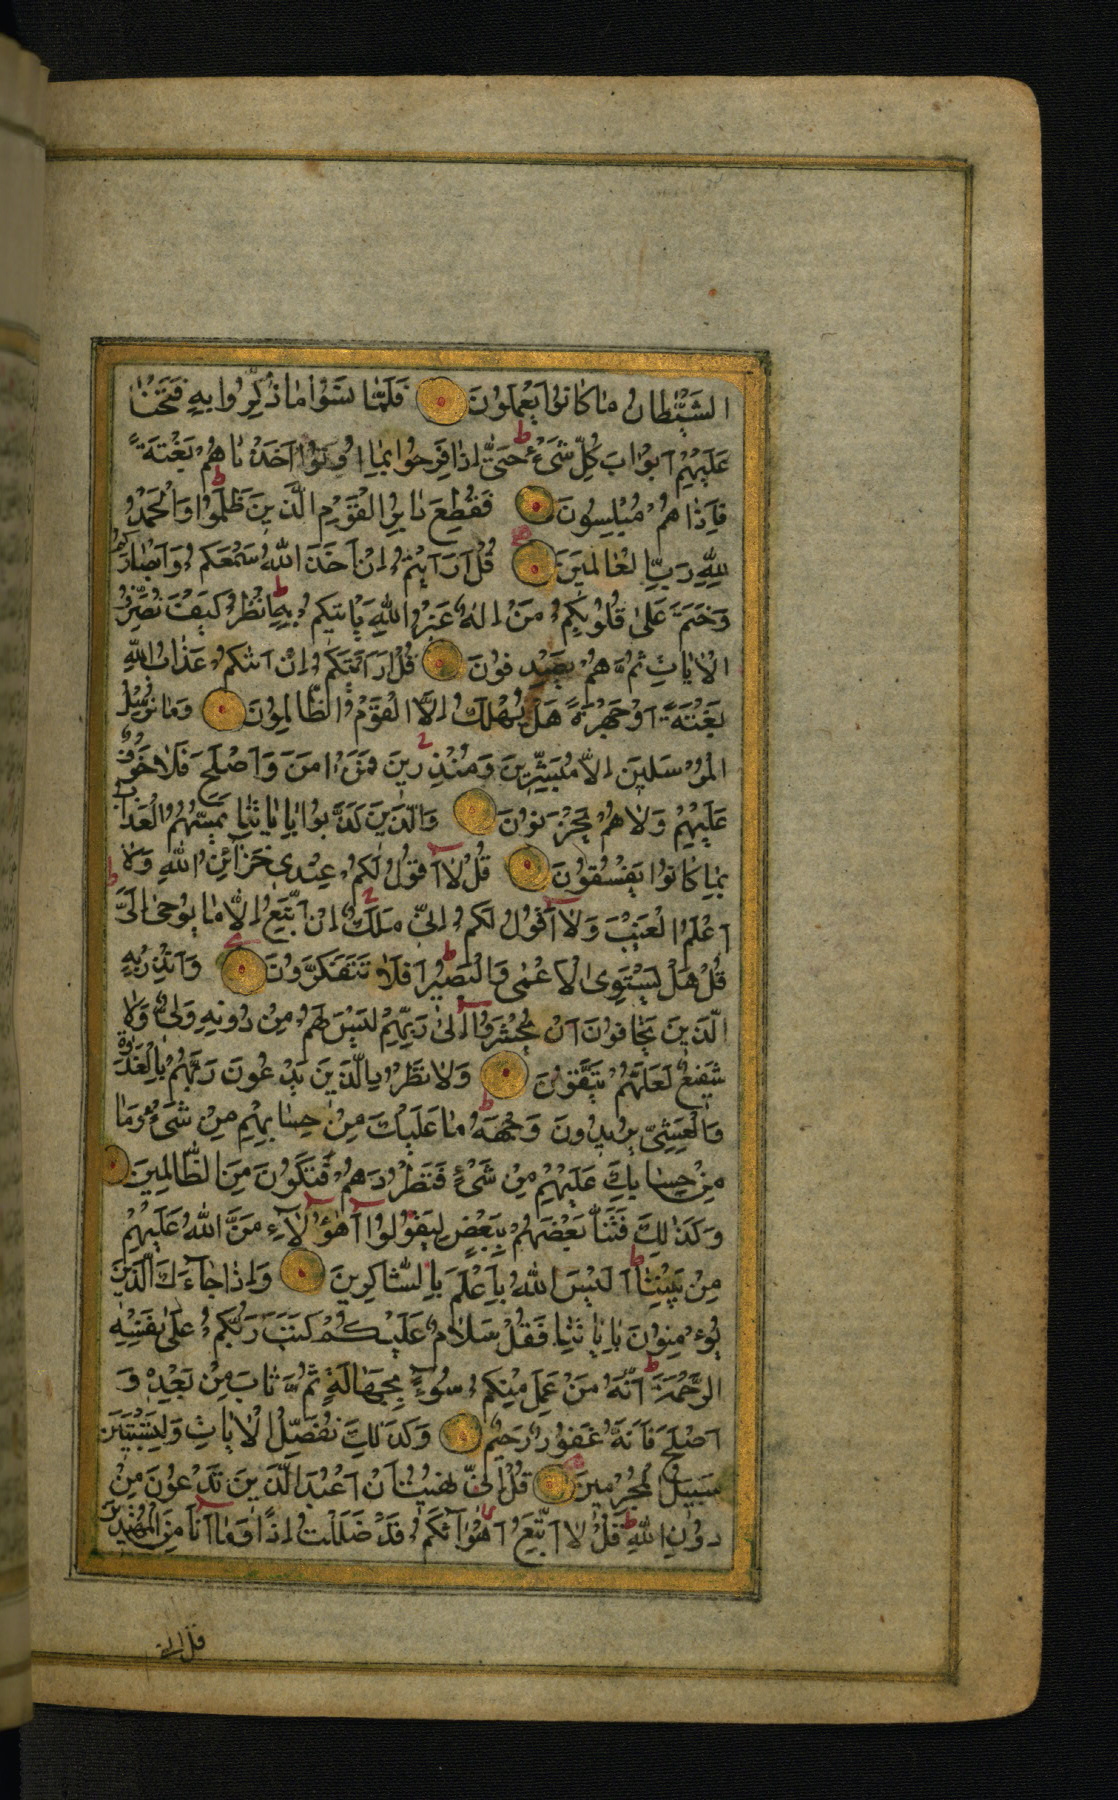 الشَّيْطَانُ مَا كَانُوا يَعْمَلُونَ فَلَمَّا نَسُوا مَا ذُكِّرُوا بِهِ فَتَحْنَا
عَلَيْهِمْ أَبْوَابَ كُلِّ شَيْءٍ حَتَّى إِذَا فَرِحُوا بِمَا أُوتُوا أَخَذْنَاهُمْ بَغْتَةً
فَإِذَا هُمْ مُبْلِسُونَ فَقُطِعَ دَابِرُ الْقَوْمِ الَّذِينَ ظَلَمُوا وَالْحَمْدُ
لِلَّهِ رَبِّ الْعَالَمِينَ قُلْ أَرَأَيْتُمْ إِنْ أَخَذَ اللَّهُ سَمْعَكُمْ وَأَبْصَارَكُمْ
وَخَتَمَ عَلَى قُلُوبِكُمْ مَنْ إِلَهٌ غَيْرُ اللَّهِ يَأْتِيكُمْ بِهِ انْظُرْ كَيْفَ نُصَرِّفُ
الْآيَاتِ ثُمَّ هُمْ يَصْدِفُونَ قُلْ أَرَأَيْتَكُمْ إِنْ أَتَاكُمْ عَذَابُ اللَّهِ
بَغْتَةً أَوْ جَهْرَةً هَلْ يُهْلَكُ إِلَّا الْقَوْمُ الظَّالِمُونَ وَمَا نُرْسِلُ
الْمُرْسَلِينَ إِلَّا مُبَشِّرِينَ وَمُنْذِرِينَ فَمَنْ آمَنَ وَأَصْلَحَ فَلَا خَوْفٌ
عَلَيْهِمْ وَلَا هُمْ يَحْزَنُونَ وَالَّذِينَ كَذَّبُوا بِآيَاتِنَا يَمَسُّهُمُ الْعَذَابُ
بِمَا كَانُوا يَفْسُقُونَ قُلْ لَا أَقُولُ لَكُمْ عِنْدِي خَزَائِنُ اللَّهِ وَلَا
أَعْلَمُ الْغَيْبَ وَلَا أَقُولُ لَكُمْ إِنِّي مَلَكٌ إِنْ أَتَّبِعُ إِلَّا مَا يُوحَى إِلَيَّ
قُلْ هَلْ يَسْتَوِي الْأَعْمَى وَالْبَصِيرُ أَفَلَا تَتَفَكَّرُونَ وَأَنْذِرْ بِهِ
الَّذِينَ يَخَافُونَ أَنْ يُحْشَرُوا إِلَى رَبِّهِمْ لَيْسَ لَهُمْ مِنْ دُونِهِ وَلِيٌّ وَلَا
شَفِيعٌ لَعَلَّهُمْ يَتَّقُونَ وَلَا تَطْرُدِ الَّذِينَ يَدْعُونَ رَبَّهُمْ بِالْغَدَاوةِ
وَالْعَشِيِّ يُرِيدُونَ وَجْهَهُ مَا عَلَيْكَ مِنْ حِسَابِهِمْ مِنْ شَيْءٍ وَمَا
مِنْ حِسَابِكَ عَلَيْهِمْ مِنْ شَيْءٍ فَتَطْرُدَهُمْ فَتَكُونَ مِنَ الظَّالِمِينَ
وَكَذَلِكَ فَتَنَّا بَعْضَهُمْ بِبَعْضٍ لِيَقُولُوا أَهَؤُلَاءِ مَنَّ اللَّهُ عَلَيْهِمْ
مِنْ بَيْنِنَا أَلَيْسَ اللَّهُ بِأَعْلَمَ بِالشَّاكِرِينَ وَإِذَا جَاءَكَ الَّذِينَ
يُؤْمِنُونَ بِآيَاتِنَا فَقُلْ سَلَامٌ عَلَيْكُمْ كَتَبَ رَبُّكُمْ عَلَى نَفْسِهِ
الرَّحْمَةَ أَنَّهُ مَنْ عَمِلَ مِنْكُمْ سُوءًا بِجَهَالَةٍ ثُمَّ تَابَ مِنْ بَعْدِهِ وَ
أَصْلَحَ فَأَنَّهُ غَفُورٌ رَحِيمٌ وَكَذَلِكَ نُفَصِّلُ الْآيَاتِ وَلِتَسْتَبِينَ
سَبِيلُ الْمُجْرِمِينَ قُلْ إِنِّي نُهِيتُ أَنْ أَعْبُدَ الَّذِينَ تَدْعُونَ مِنْ
دُونِ اللَّهِ قُلْ لَا أَتَّبِعُ أَهْوَاءَكُمْ قَدْ ضَلَلْتُ إِذًا وَمَا أَنَا مِنَ الْمُهْتَدِينَ
قل انى